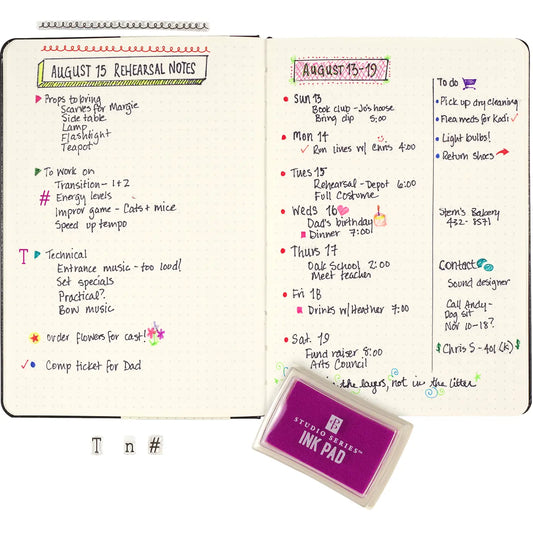 AUGUST 15 REHEARSAL NOTES
Props to bring
Scarves for Margie
Side table
Lamp
Flashlight
Teapot
To work on
Transition - 1+2
# Energy levels
Improv game - Cats + mice
Speed up tempo
T Technical
Entrance music - too loud!
Set specials
Practical?
Bow music
order flowers for cast!
Comp ticket for Dad
T n #
AUGUST 13-19
Sun 13
Book club - Jo's house
Bring dip 5:00
Mon 14
Run lines w/ Chris 4:00
Tues 15
Rehearsal - Depot 6:00
Full Costume
Weds 16
Dad's birthday
Dinner 7:00
Thurs 17
Oak School 2:00
Meet teacher
Fri 18
Drinks w/Heather 7:00
Sat. 19
Fund raiser 8:00
Arts Council
in the layers, not in the litter
To do
Pick up dry cleaning
Flea meds for Kodi
Light bulbs!
Return shoes
Stern's Bakery
432-8571
Contact
Sound designer
Call Andy -
Dog sit
Nov 10-18?
$ Chris S - 401(k) $
STUDIO SERIES™
INK PAD